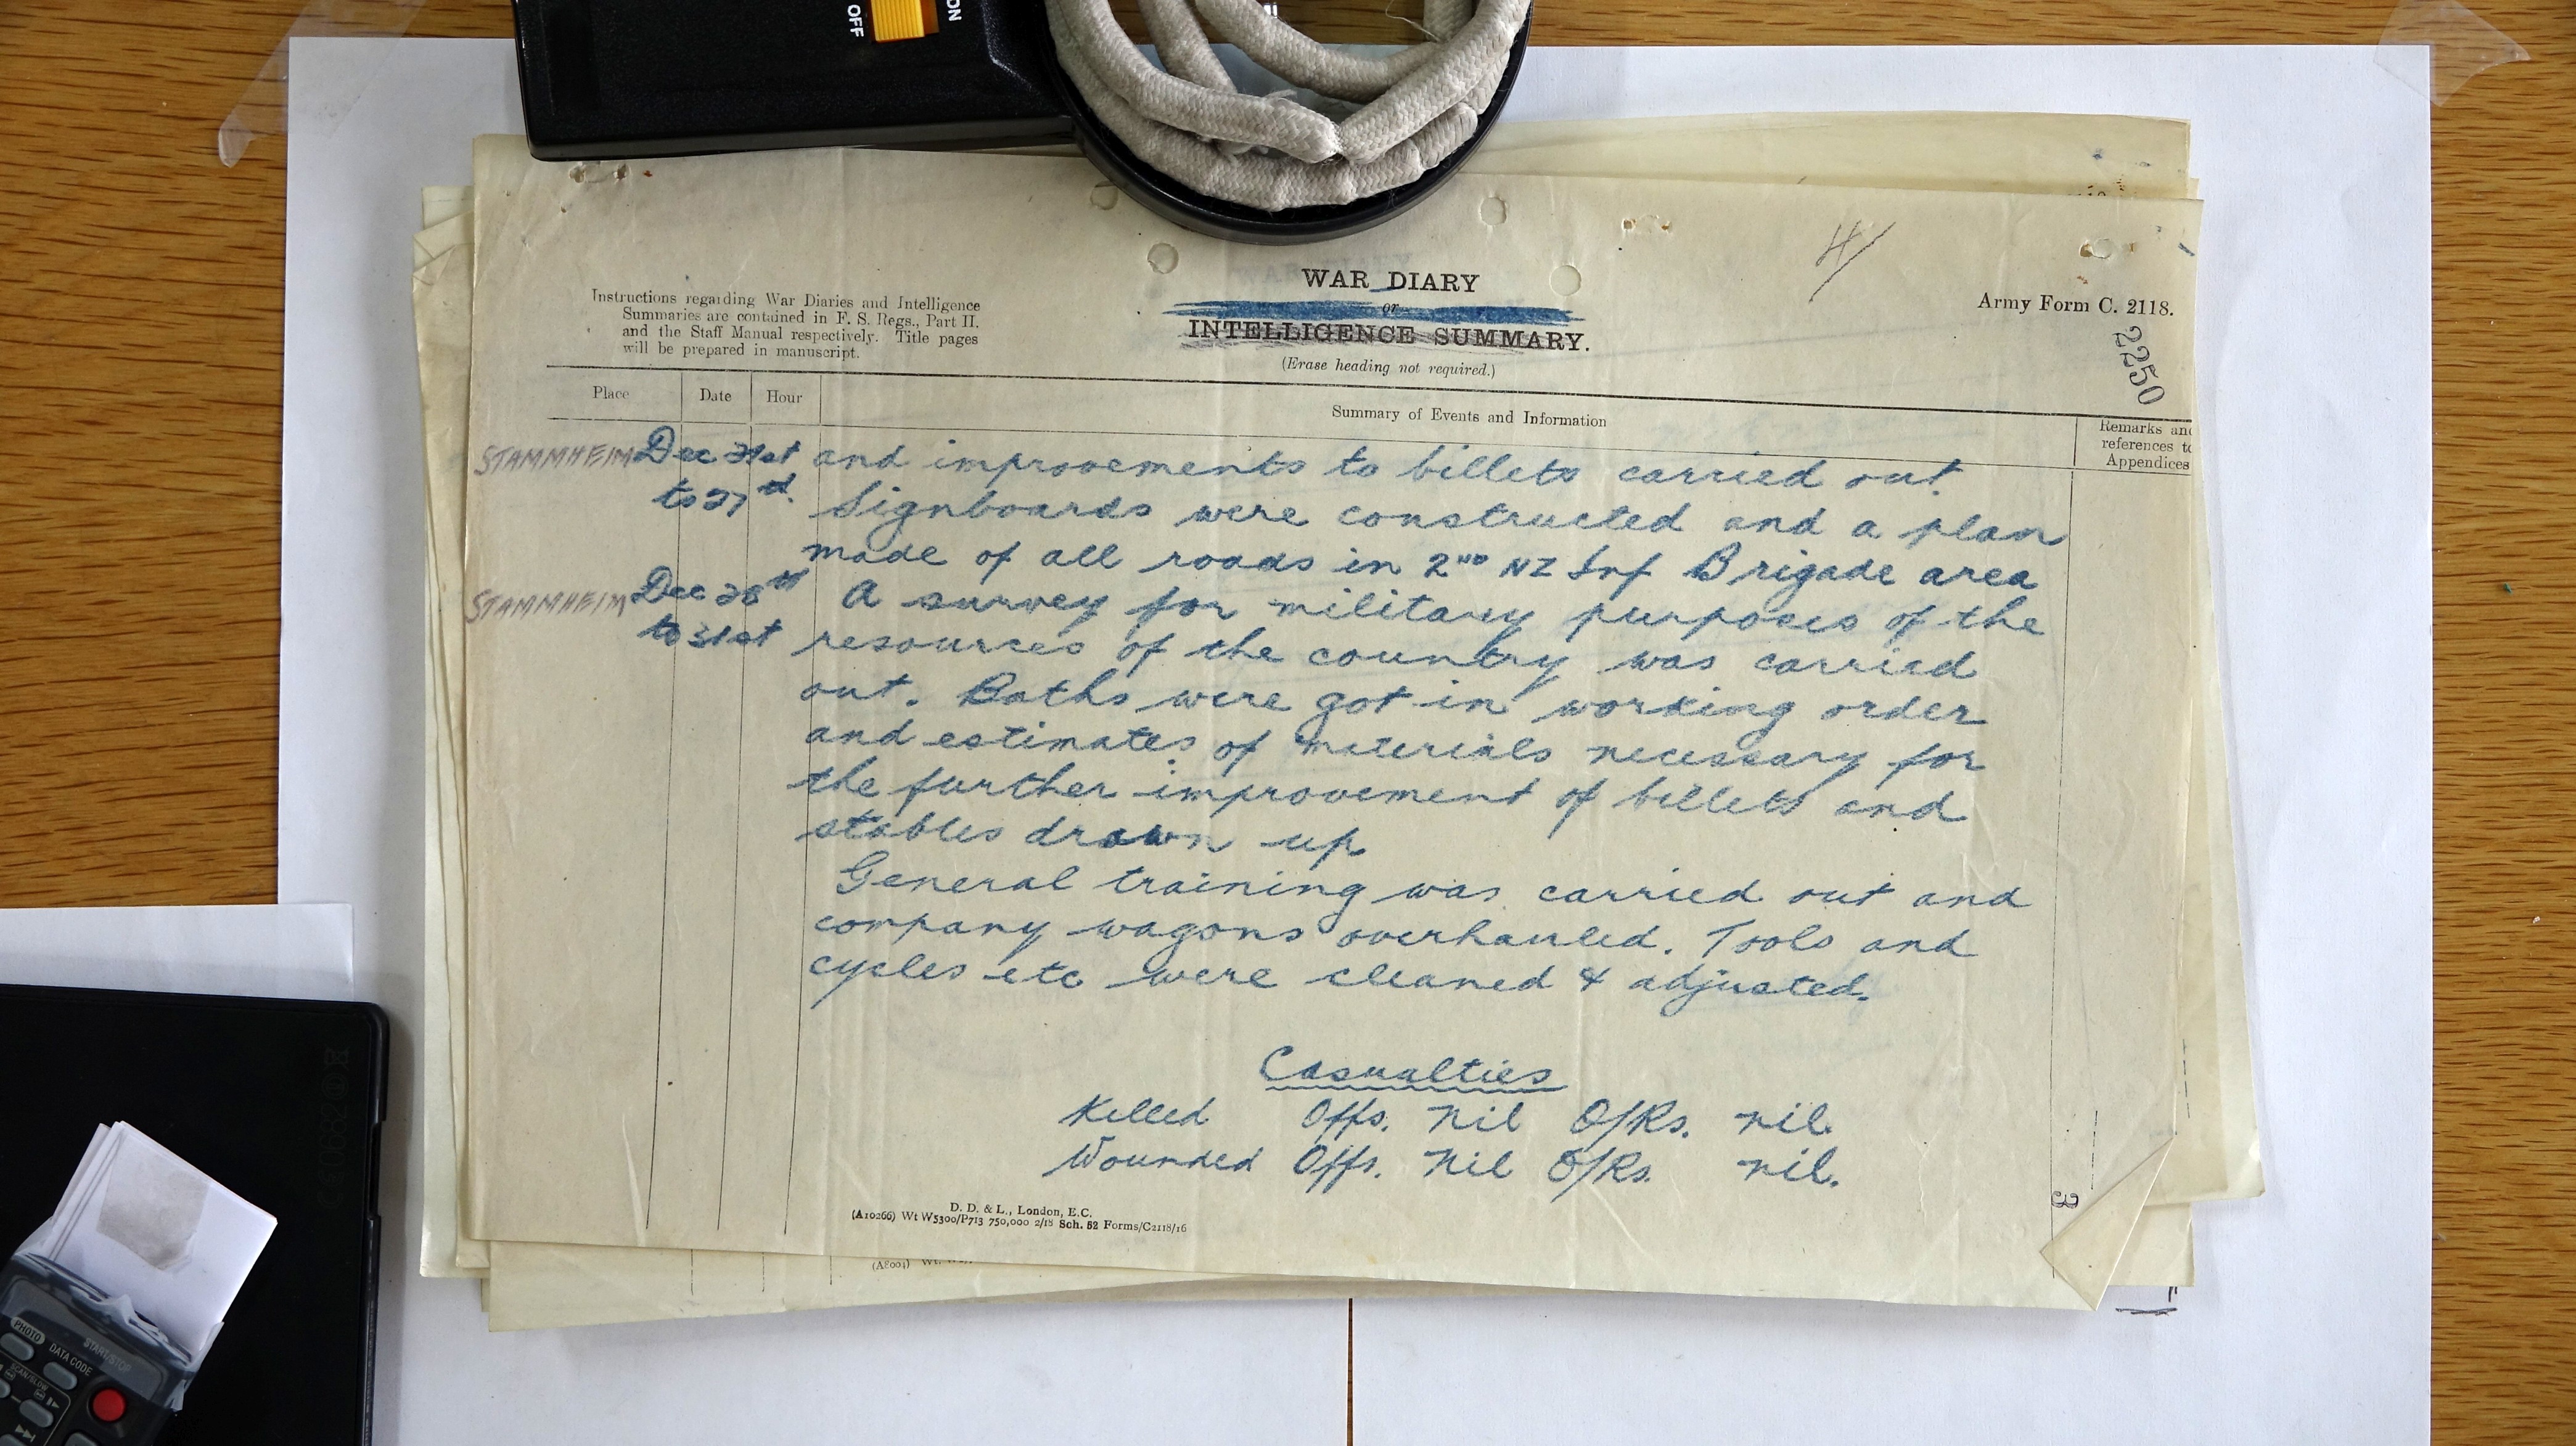 OFF
ON
4/
WAR DIARY
or
INTELLIGENCE SUMMARY.
(Erase heading not required.)
Instructions regarding War Diaries and Intelligence
Summaries are contained in F. S. Regs., Part II.
and the Staff Manual respectively. Title pages
will be prepared in manuscript.
Army Form C. 2118.
2250
Place Date Hour Summary of Events and Information
Remarks and
references to
Appendices
STAMMHEIM Dec 21st and improvements to billets carried out.
to 27th. Signboards were constructed and a plan
made of all roads in 2ND NZ Inf Brigade area
STAMMHEIM Dec 28th A survey for military purposes of the
to 31st resources of the country was carried
out. Baths were got in working order
and estimates of materials necessary for
the further improvement of billets and
stables drawn up
General training was carried out and
company wagons overhauled. Tools and
cycles etc were cleaned & adjusted.
Casualties
Killed Offs. Nil O/Rs. nil.
Wounded Offs. Nil O/Rs. nil.
D. D. & L., London, E.C.
(A10266) Wt W5300/P713 750,000 2/18 Sch. 52 Forms/C2118/16
3
PHOTO
DATA CODE
START/STOP
SCAN/SLOW